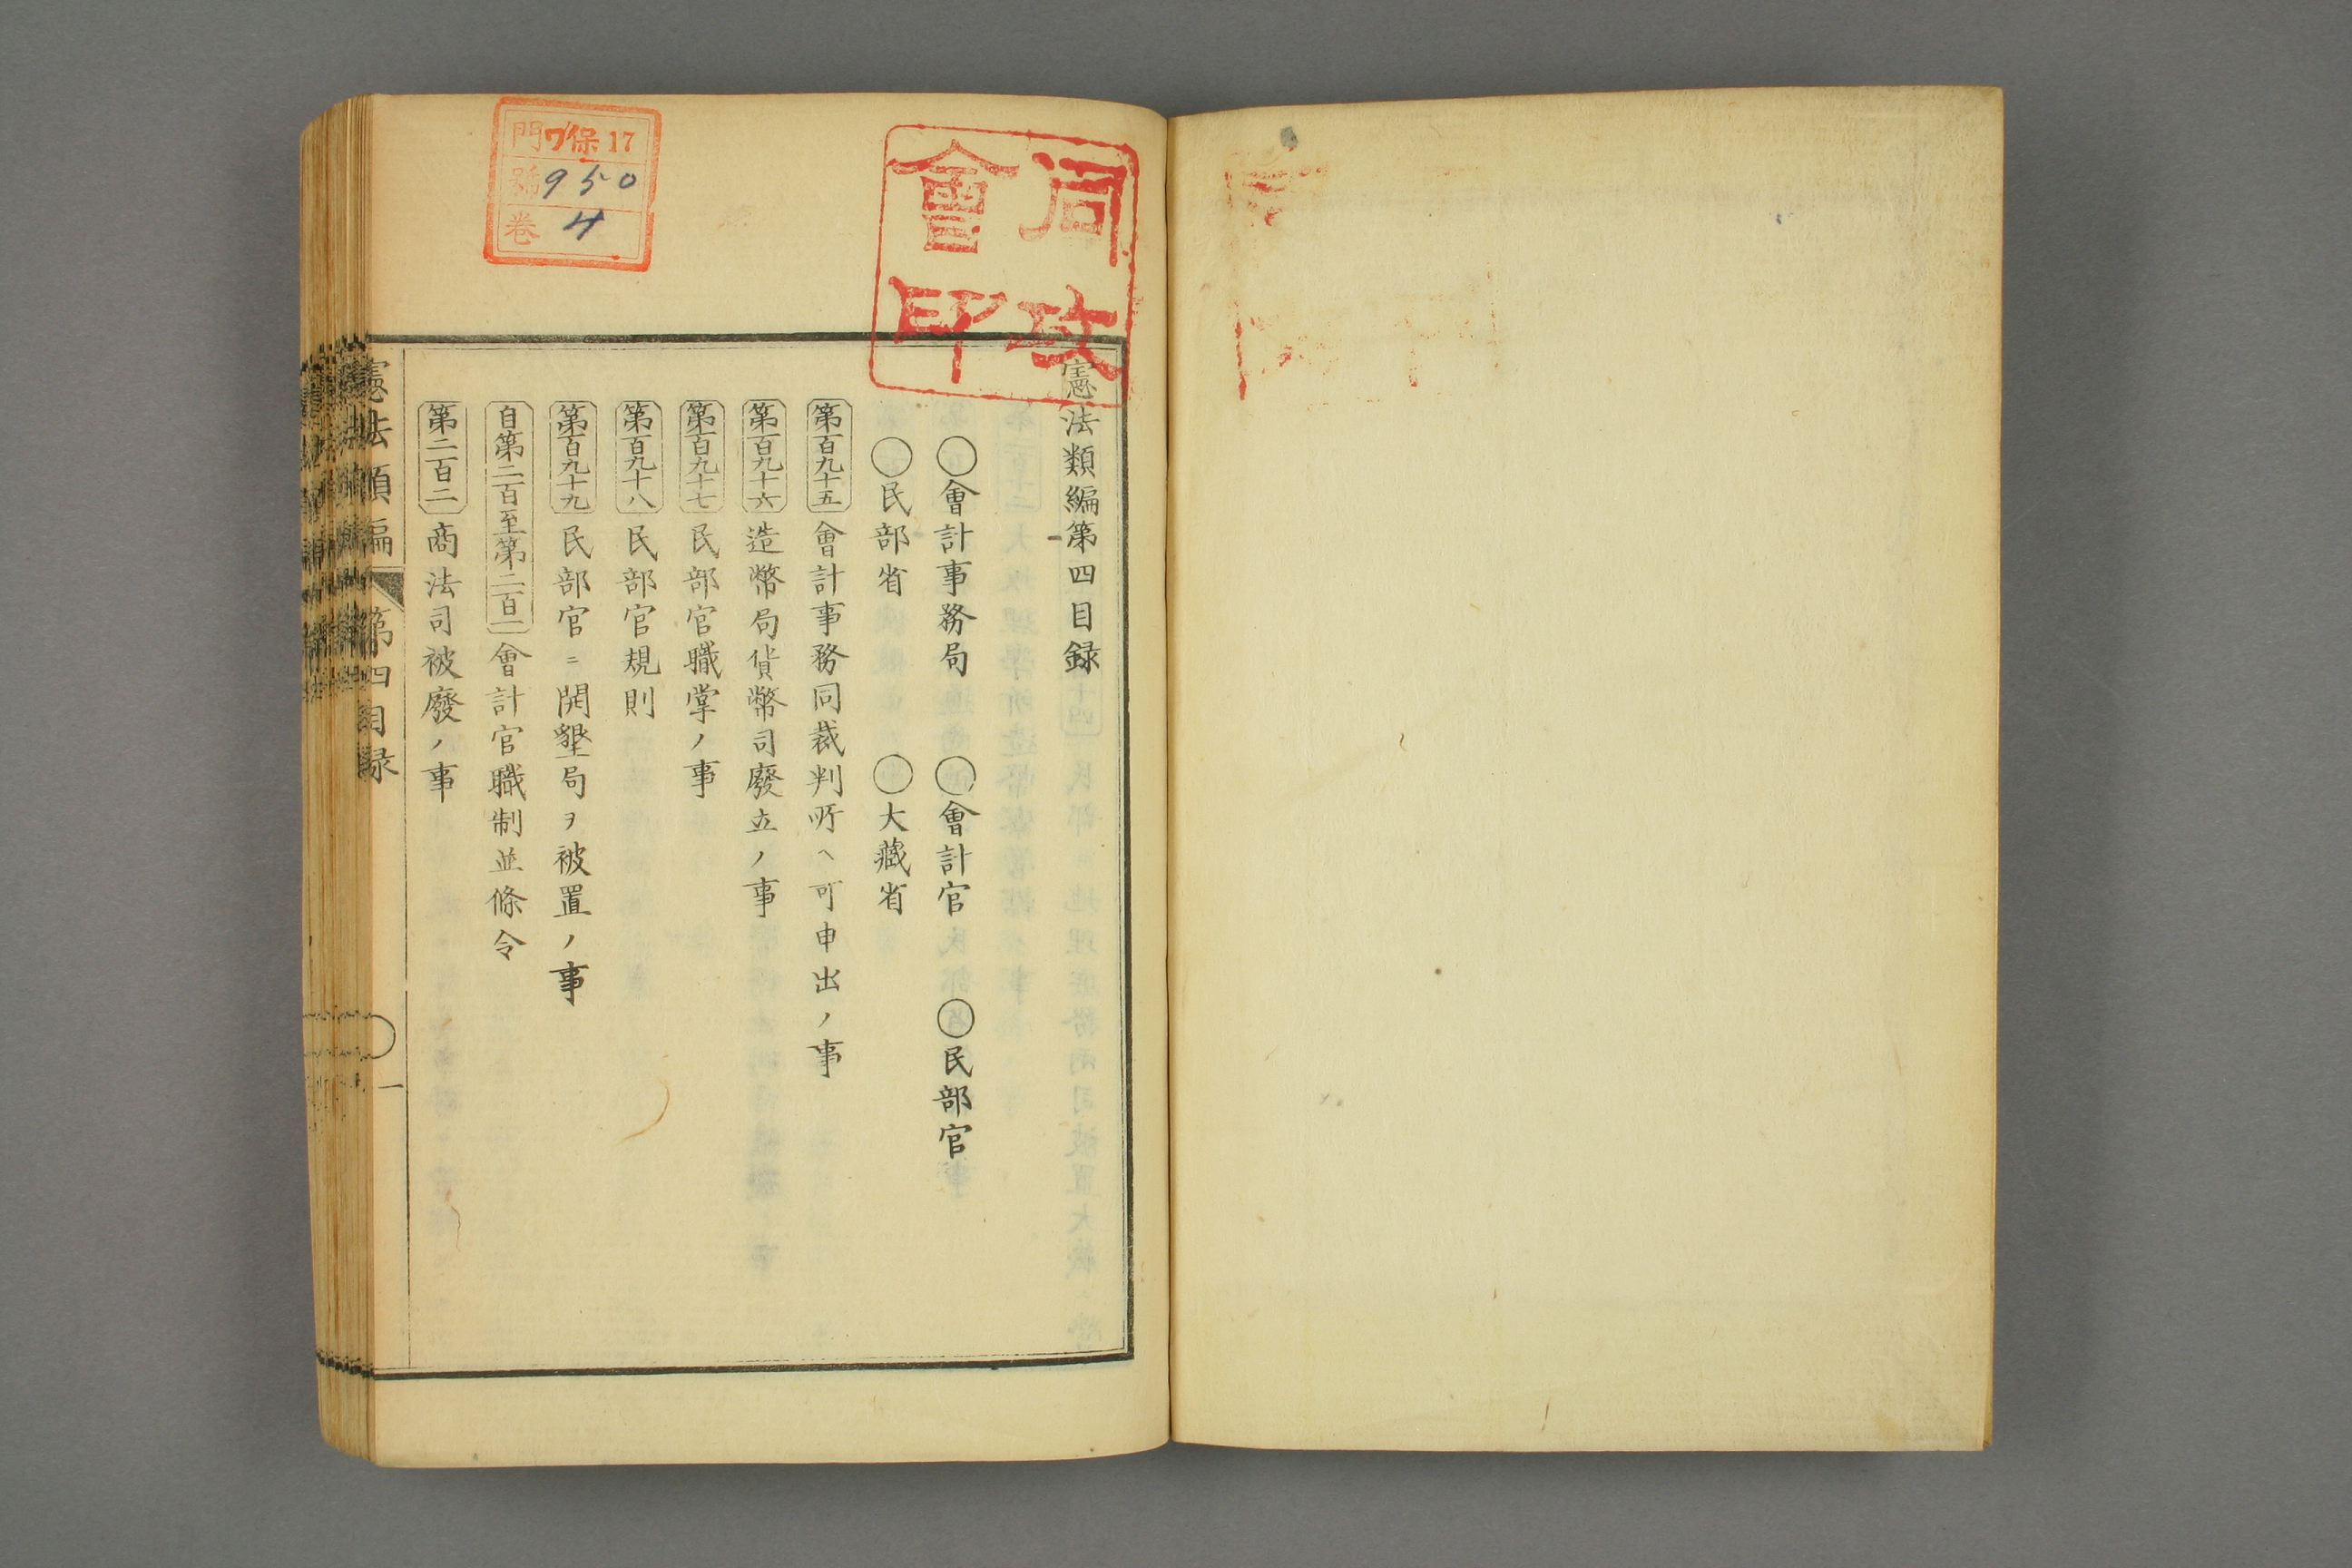 憲法類編第四目録
○會計事務局　○會計官　○民部官
○民部省　○大藏省
第百九十五　會計事務同裁判所ヘ可申出ノ事
第百九十六　造幣局貨幣司廢立ノ事
第百九十七　民部官職掌ノ事
第百九十八　民部官規則
第百九十九　民部官ニ開墾局ヲ被置ノ事
自第二百至第二百一　會計官職制並條令
第二百二　商法司被廢ノ事
憲法類編　第四目録　一
同攻
會印
門ワ保17
號950
卷4